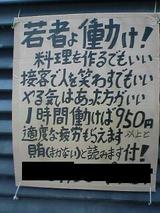 若者よ働け!
料理を作るでもいい
接客で人を笑わすでもいい
やる気はあった方がいい
1時間働けば950円
適度な疲労もらえます以上と
賄(まかない)と読みます付!